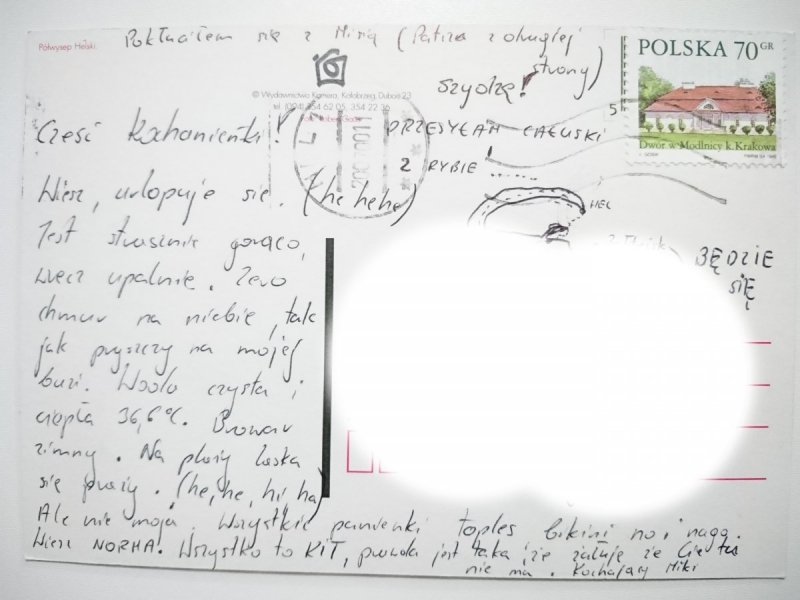 Półwysep Helski.
Pokłułem się z Misią (Patrz z drugiej
strony)
szydzę!
© Wydawnictwo Kamera, Kołobrzeg, Dubois 23
tel. (094) 354 62 05, 354 22 36
POLSKA 70 GR
Dwór w Modlnicy k. Krakowa
5
Cześć Kochanieńki!
PRZESYŁAM CAŁUSKI
Z RYBIE!......
HEL
BĘDZIE
SIĘ
Wiesz, urlopuje się. (he hehe)
Jest strasznie gorąco,
wręcz upalnie. Zero
chmur na niebie, tak
jak pryszczy na mojej
buzi. Woda czysta i
ciepła 36,6°C. Browar
zimny. Na plaży laska
się praży. (he, he, hi, ha)
Ale nie moja. Wszystkie panienki toples bikini no i nago.
Wiesz NORMA. Wszystko to KIT, prawda jest taka, że żałuję że Cię tu
nie ma. Kochający Miki